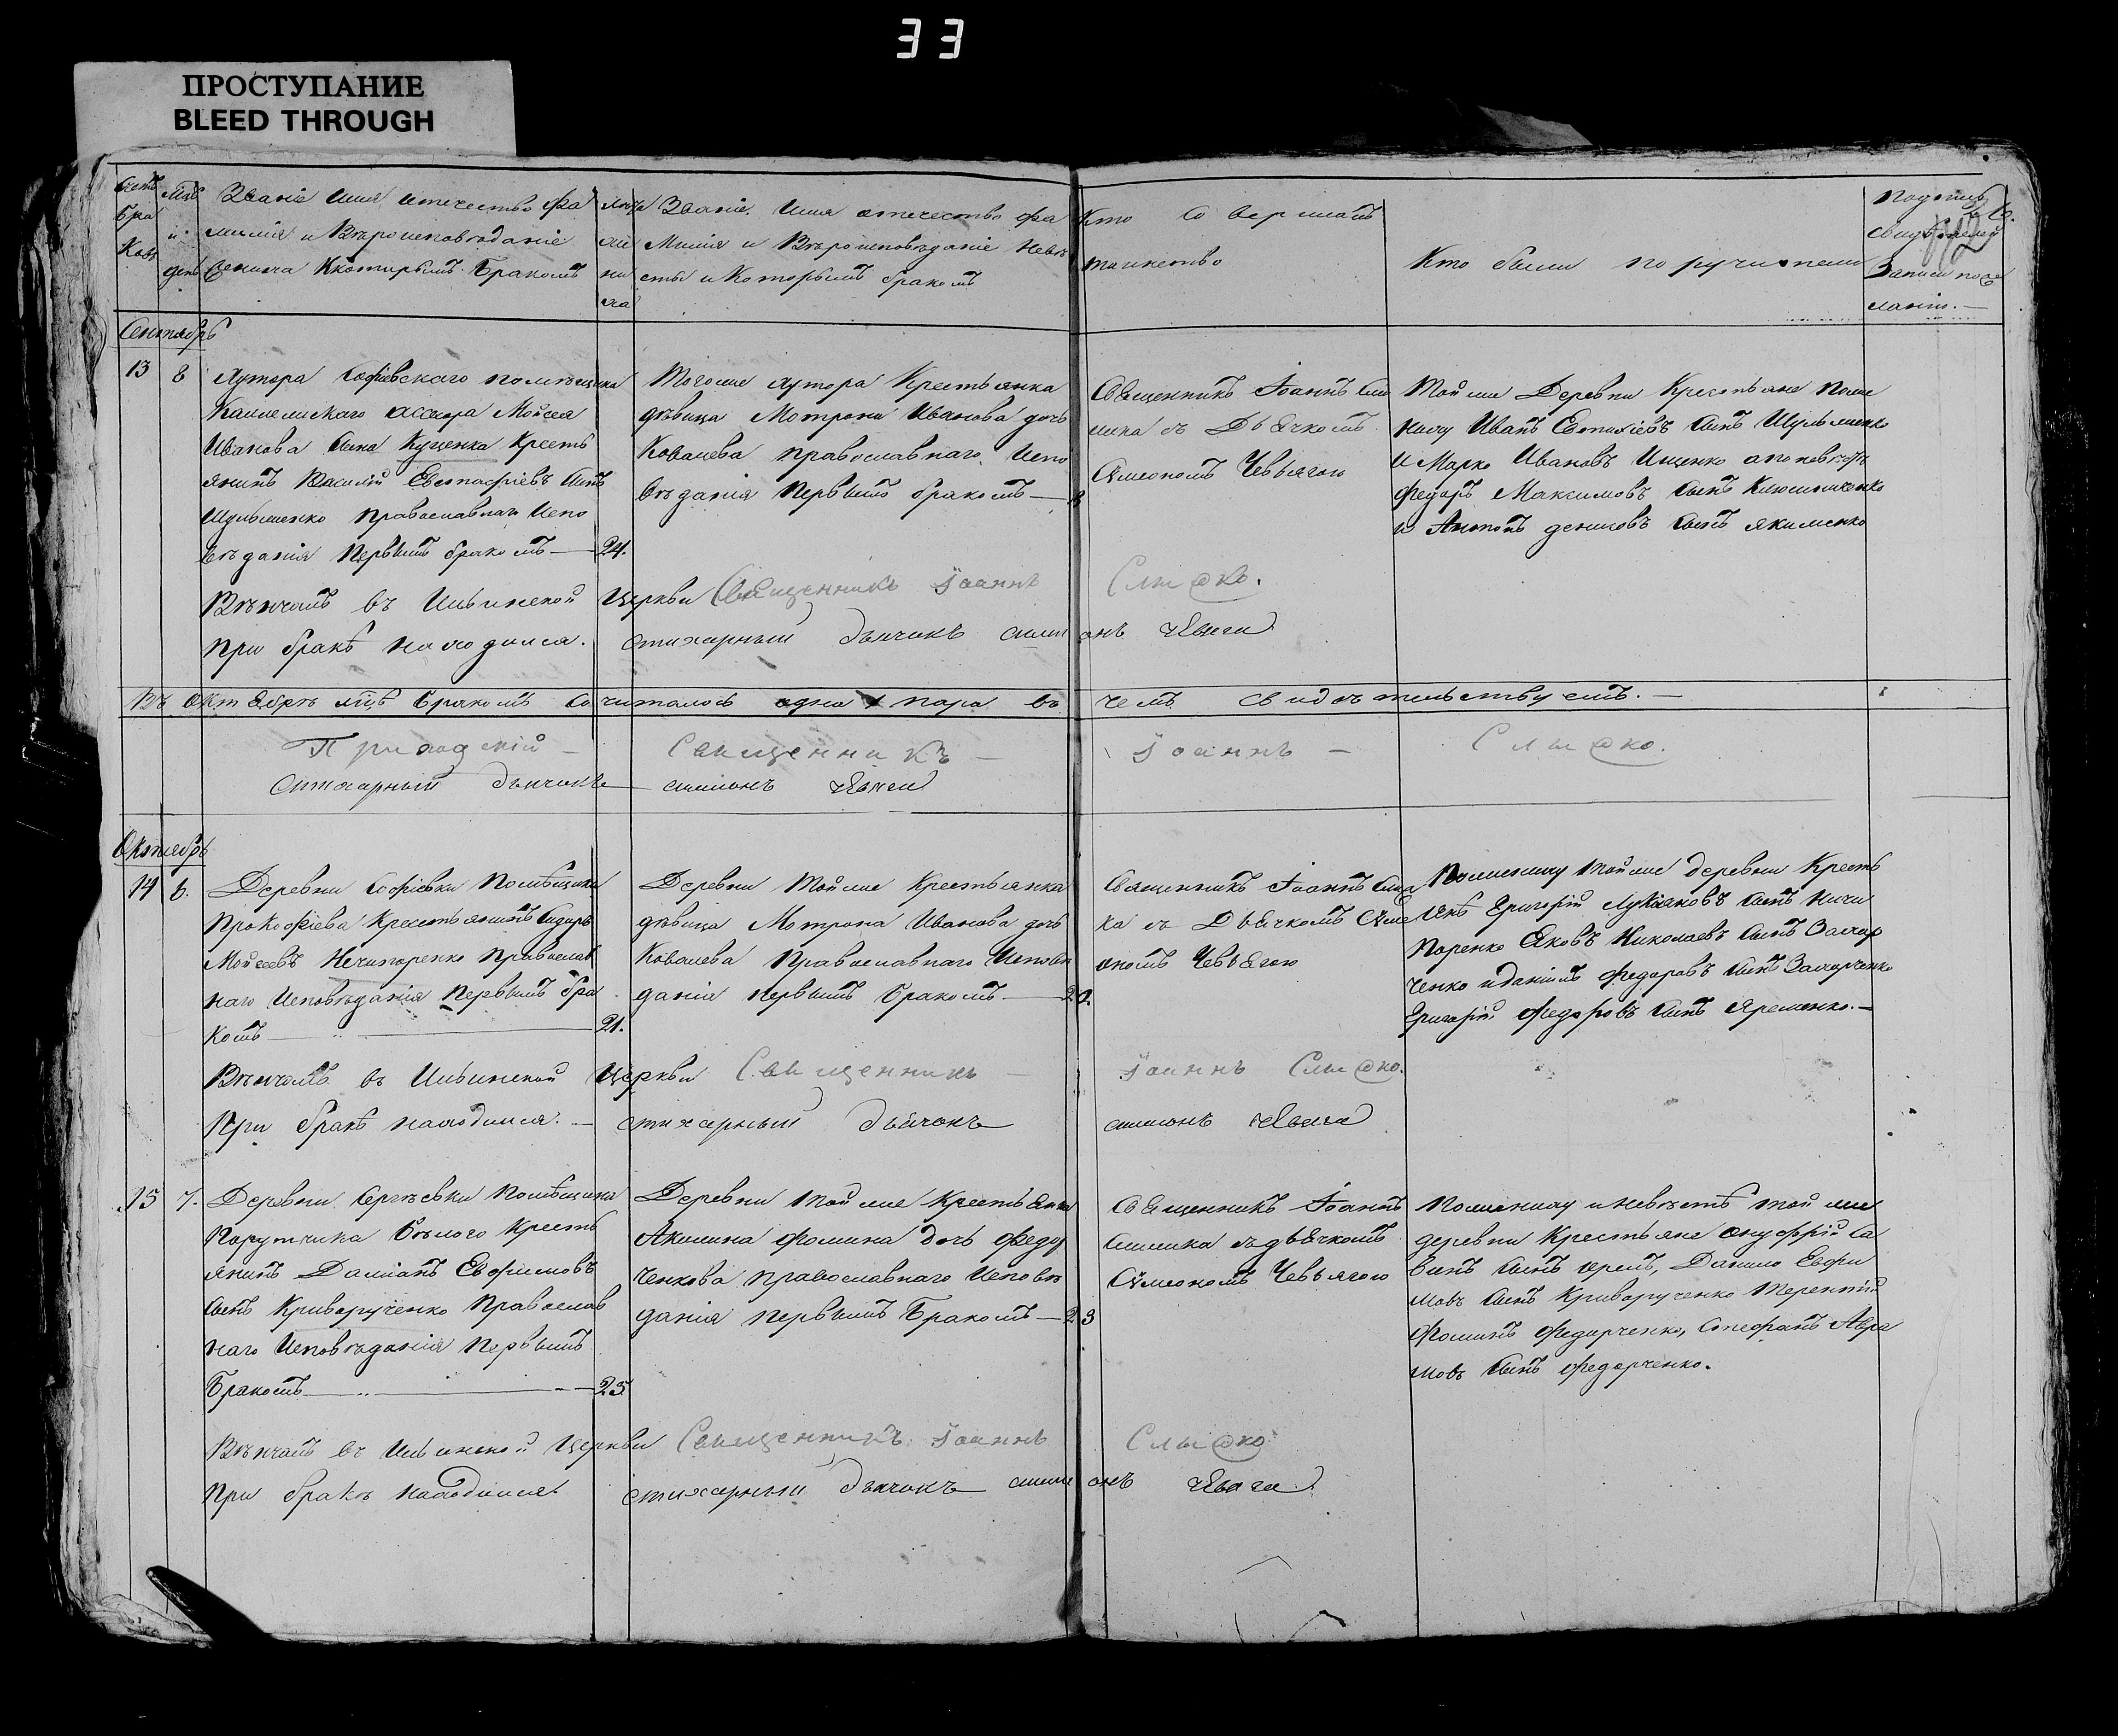 33
ПРОСТУПАНИЕ
BLEED THROUGH
Счетъ бра ковъ
Мцъ и день
Званіе Имя отечество фа
милія и Вѣроисповѣданіе
Жениха Которымъ Бракомъ
Званіе Имя отечество фа
милія и Вѣроисповѣданіе Невѣ
сты и Которымъ бракомъ
Кто совершалъ
таинство
Кто были поручители
Подпись
свидѣтелей
Записи по же
ланію.
Сентябрь
13
8
Хутора Софіевскаго помѣщика
Ассесора Мойсея
Иванова сына Куценка Кресть
янинъ Василій Евстафіевъ сынъ
Шульженко Православнаго Испо
вѣданія Первымъ бракомъ — 24.
Тогоже хутора Крестьянка
дѣвица Мотрона Иванова дочь
Ковалева православнаго Испо
вѣданія Первымъ бракомъ —
Священникъ Іоаннъ Сли
зика съ Дьячкомъ
Сѵмеономъ Чевьягою
Тойже Деревни Крестьяне Поже
ниху Иванъ сынъ Шульженко
и Марко Ивановъ Ищенко апоневѣстѣ
Федоръ Максимовъ сынъ
и Антонъ сынъ Якименко
Вѣнчалъ въ Ильинской Церкви Священникъ Іоаннъ
При бракѣ находился. стихарный дьячокъ симеонъ Чевяга
Въ Октябрѣ мцѣ бракомъ сочиталось одна пара въ чемъ свидѣтельствуемъ. —
Приходскій — Священникъ — Іоаннъ —
Стихарный дьячокъ симионъ
Октябрь
14
6.
Деревни Софіевки Помѣщика
Прокофіева Крестьянинъ Сидоръ
Мойсеевъ Нечипоренко Православ
наго Исповѣданія Первымъ бра
комъ — 21.
Деревни Тойже Крестьянка
дѣвица Мотрона Иванова дочь
Ковалева Православнаго Исповѣ
данія первымъ бракомъ —
Священникъ Іоаннъ
ка съ Дьячкомъ Сѵме
ономъ Чевьягою
Поженику тойже деревни Кресть
яне Григорій Лукіановъ сынъ Ничи
поренко Яковъ Николаевъ сынъ Захар
ченко иданіилъ Федоровъ сынъ Захарченко
Григорій Федоровъ сынъ Яременко. —
Вѣнчалъ въ Ильинской Церкви Священникъ — Іоаннъ
При бракѣ находился. — стихарный дьячокъ симионъ Чевяга
15
7.
Деревни Сергѣевки Помѣщика
Порутчика Бѣлого Кресть
янинъ Даміанъ Евфимовъ
сынъ Криворученко Православ
наго Исповѣданія Первымъ
Бракомъ — 25
Деревни Тойже Крестьянка
Акилина Фомина дочь Федор
ченкова православнаго Исповѣ
данія первымъ Бракомъ — 23
Священникъ Іоаннъ
съдьячкомъ
Сѵмеономъ Чевьягою
Поженику иневѣстѣ той же
деревни Крестьяне Онуфрій Са
винъ сынъ Данило Евфи
мовъ сынъ Криворученко Терентій
Фоминъ Федорченко, Стефанъ Авра
мовъ сынъ Федорченко.
Вѣнчалъ въ Ильинской Церкви Священникъ Іоаннъ
При бракѣ находился стихарный дьячокъ симионъ Чевяга